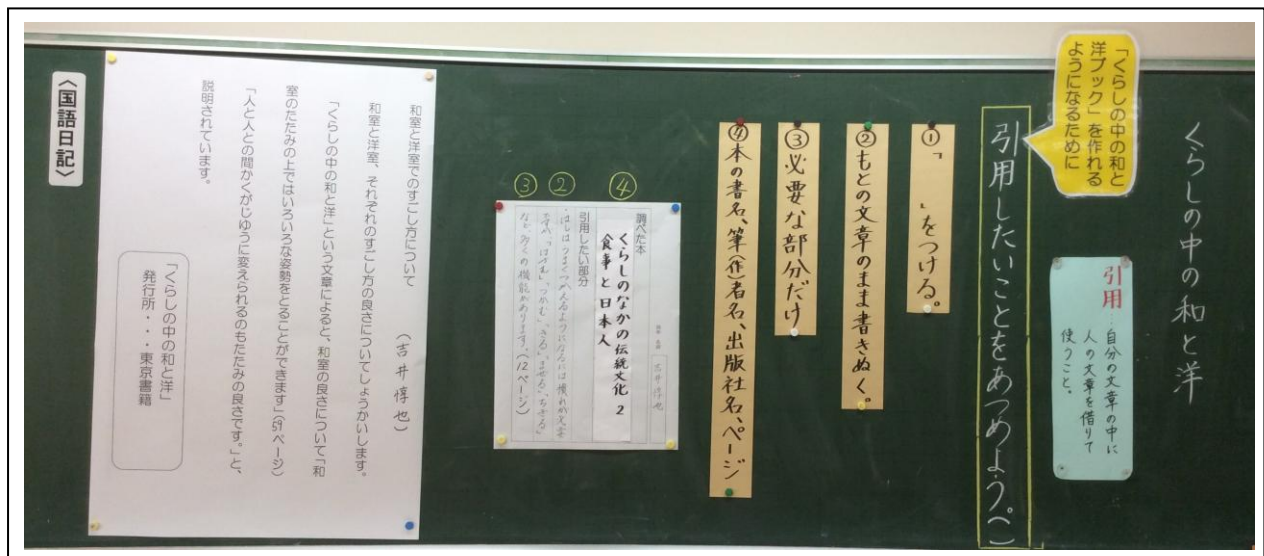 くらしの中の和と洋
引用‥自分の文章の中に
人の文章を借りて
使うこと。
「くらしの中の和と
洋ブック」を作れる
ようになるために
引用したいことをあつめよう。
①「 」をつける。
②もとの文章のまま書きぬく。
③必要な部分だけ
④本の書名、筆(作)者名、出版社名、ページ
④
②
③
調べた本
吉井惇也
くらしのなかの伝統文化 2
食事と日本人
引用したい部分
はしはうまくつかえるようになるには慣れが必要
ですが「はさむ」、つかむ、きる、まぜる、ちぎる
など多くの機能があります。(12ページ)
和室と洋室でのすごし方について
(吉井惇也)
和室と洋室、それぞれのすごし方の良さについてしょうかいします。
「くらしの中の和と洋」という文章によると、和室の良さについて「和
室のたたみの上ではいろいろな姿勢をとることができます」(59ページ)
「人と人との間かくがじゆうに変えられるのもたたみの良さです。」と、
説明されています。
「くらしの中の和と洋」
発行所・・・東京書籍
〈国語日記〉